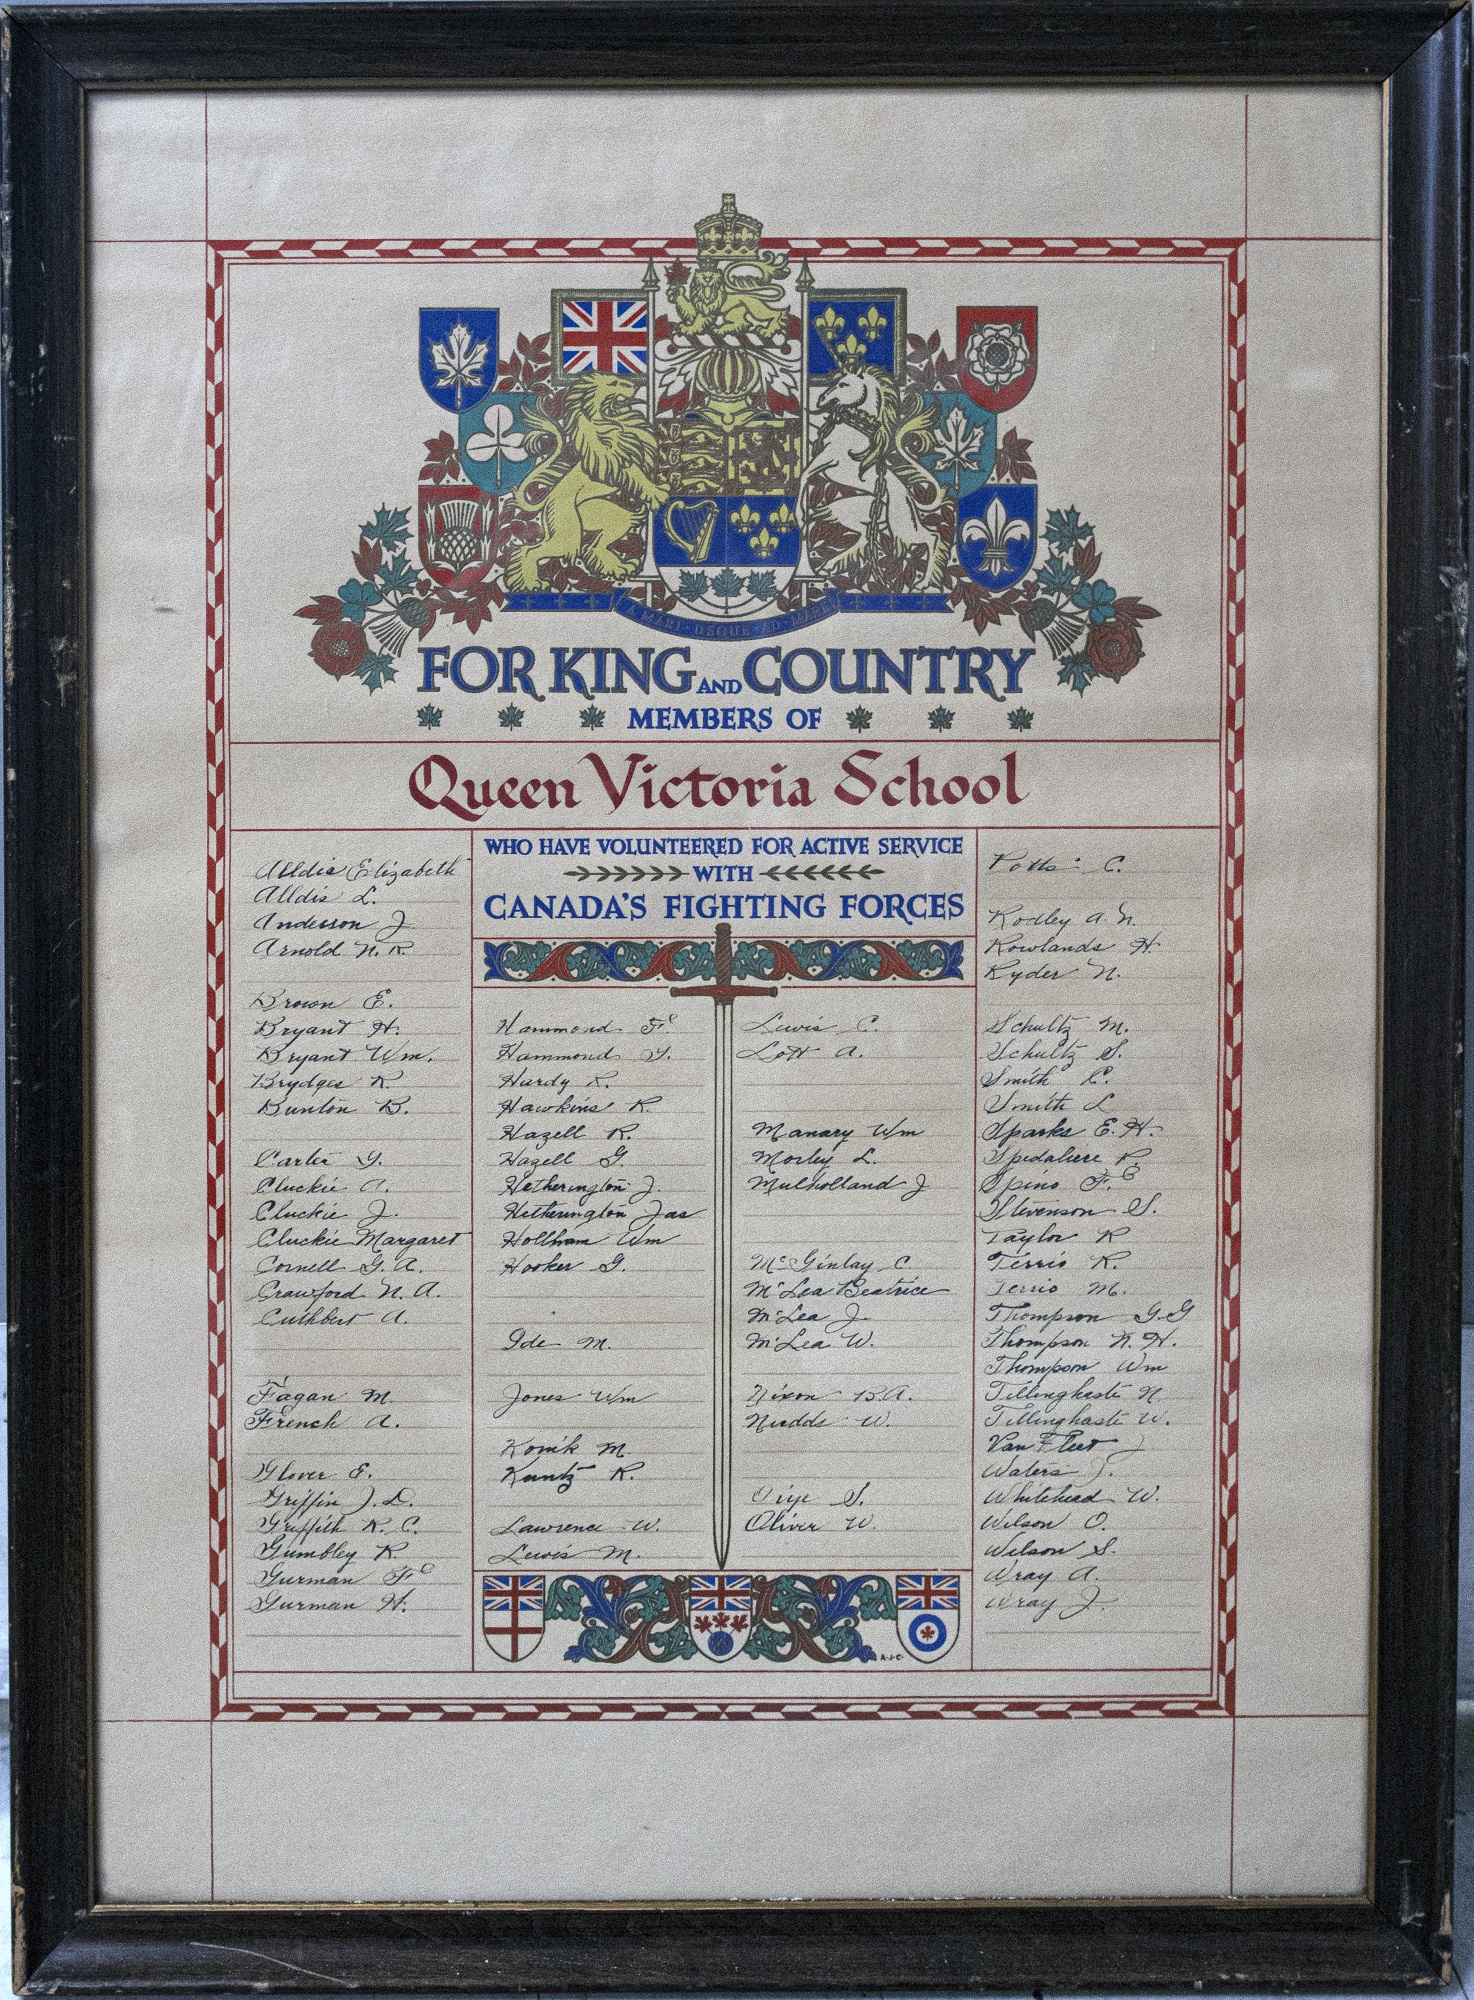 A MARI · USQUE · AD · MARE
FOR KING AND COUNTRY
MEMBERS OF
Queen Victoria School
WHO HAVE VOLUNTEERED FOR ACTIVE SERVICE
WITH
CANADA'S FIGHTING FORCES
Alldis Elizabeth
Alldis L.
Anderson J.
Arnold N. R.
Brown E.
Bryant H.
Bryant Wm.
Brydges R.
Bunton B.
Carter Y.
Cluckie A.
Cluckie J.
Cluckie Margaret
Cornell G. A.
Crawford N. A.
Cuthbert A.
Fagan M.
French A.
Glover E.
Griffin J. D.
Griffith R. C.
Gumbley R.
Gurman F.
Gurman H.
Hammond F.
Hammond Y.
Hardy R.
Hawkins R.
Hazell R.
Hazell G.
Hetherington J.
Hetherington Jas
Hollham Wm
Hooker G.
Ide M.
Jones Wm
Konik M.
Kuntz R.
Lawrence W.
Lewis M.
Lewis C.
Lott A.
Manary Wm
Morley L.
Mulholland J
McGinlay C.
McLea Beatrice
McLea J.
McLea W.
Nixon B.A.
Nudds W.
S.
Oliver W.
Potts C.
Rodley A. N.
Rowlands H.
Ryder N.
Schultz M.
Schultz S.
Smith C.
Smith L
Sparks E. H.
Spedaliere R.
Spino F.
Stevenson S.
Taylor R
Terris R.
Terrio M.
Thompson G. G
Thompson N. H.
Thompson Wm
Tillinghaste N.
Tillinghaste W.
Van Fleet J
Waters J.
Whitehead W.
Wilson O.
Wilson S.
Wray A.
Wray J.
A.J.C.